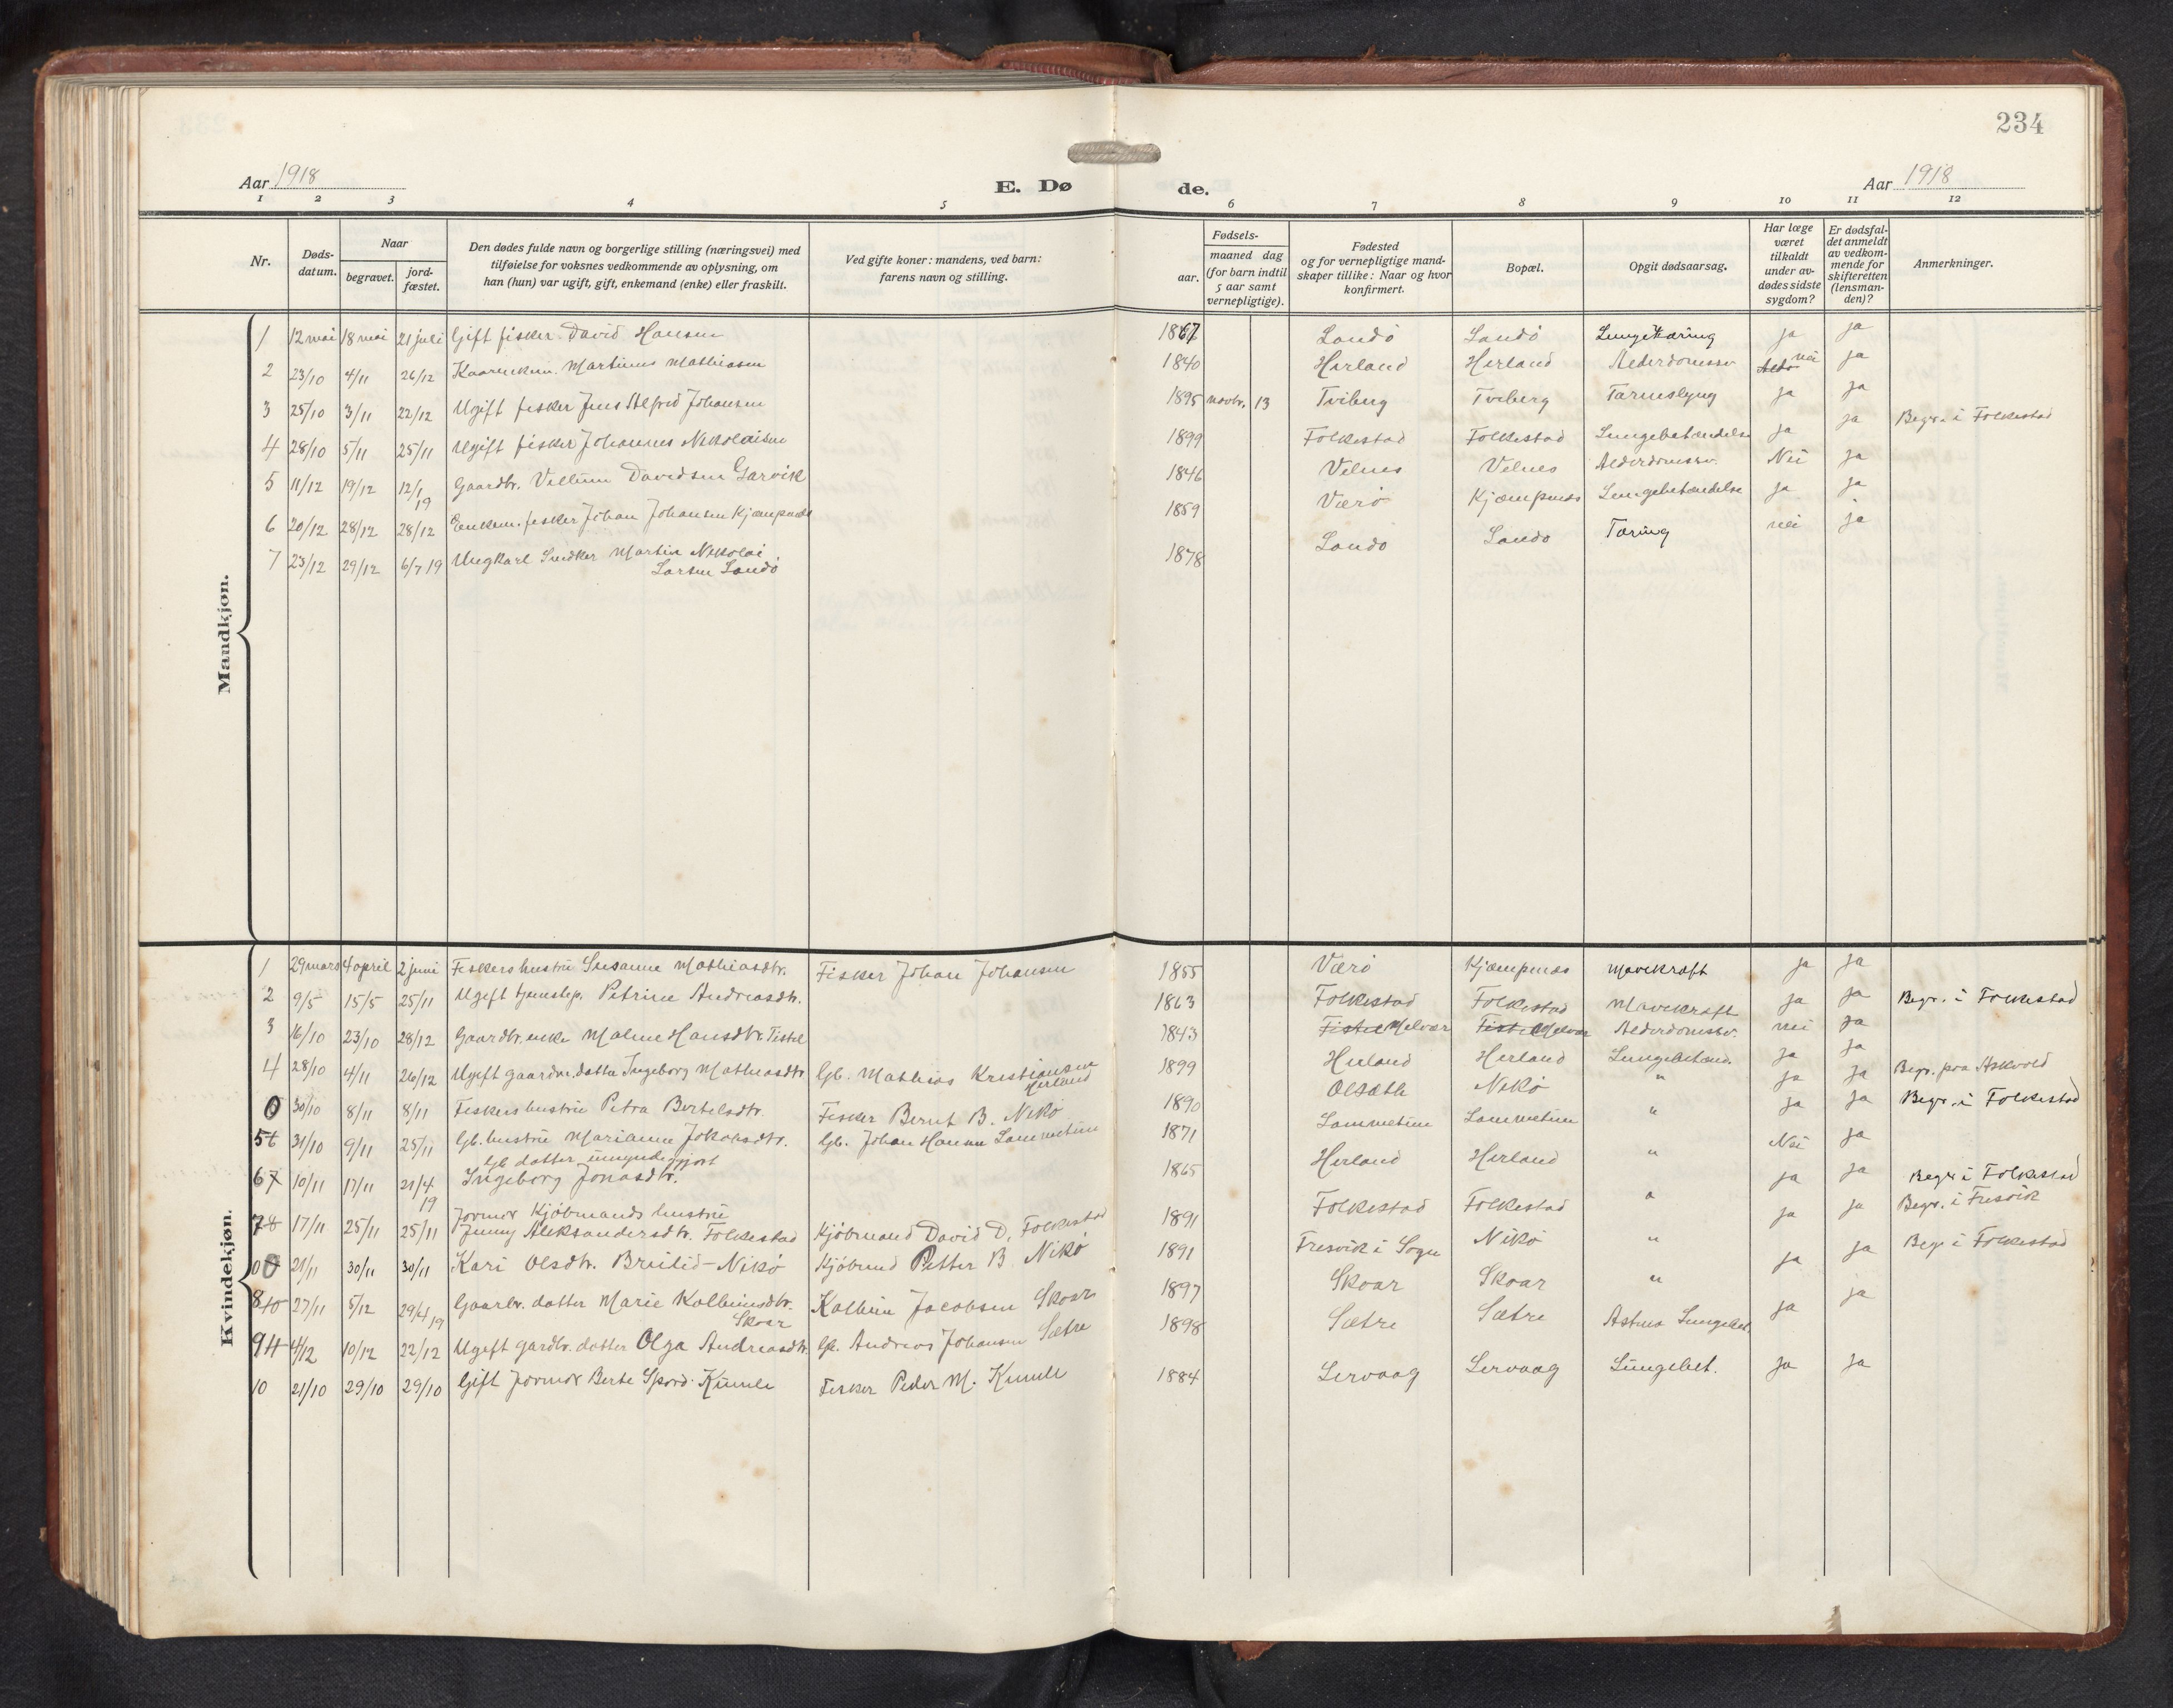 234
Aar 1918
E. Dø de.
Aar 1918
1 2 3 4 5 6 7 8 9 10 11 12
Nr.
Døds-
datum.
Naar
begravet.
jord-
fæstet.
Den dødes fulde navn og borgerlige stilling (næringsvei) med
tilføielse for voksnes vedkommende av oplysning, om
han (hun) var ugift, gift, enkemand (enke) eller fraskilt.
Ved gifte koner: mandens, ved barn:
farens navn og stilling.
Fødsels-
aar.
maaned dag
(for barn indtil
5 aar samt
vernepligtige).
Fødested
og for vernepligtige mand-
skaper tillike: Naar og hvor
konfirmert.
Bopæl.
Opgit dødsaarsag.
Har læge
været
tilkaldt
under av-
dødes sidste
sygdom?
Er dødsfal-
det anmeldt
av vedkom-
mende for
skifteretten
(lensman-
den)?
Anmerkninger.
Mandkjøn.
1 12 mai 18 mai 21 juli Gift fisker David Hansen 1867 Landö Landö Lungetæring ja ja
2 23/10 4/11 26/12 Kaarenkem. Martinus Mathiasen 1840 Herland Herland Alderdomssv. nei ja
3 25/10 3/11 22/12 Ugift fisker Jens Alfred Johansen 1895 novbr. 13 Tviberg Tviberg Tarmslyng ja ja
4 28/10 5/11 25/11 Ugift fisker Johannes Nikolaisen 1899 Folkestad Folkestad Lungebetændelse ja ja Begr. i Folkestad
5 11/12 19/12 12/1 19 Gaardbr. Villum Davidsen Garvik 1846 Velnes Velnes Alderdomssv. Nei ja
6 20/12 28/12 28/12 Enkem. fisker Johan Johansen Kjempenæs 1859 Værö Kjæmpenæs Lungebetændelse ja ja
7 23/12 29/12 6/7 19 Ungkarl Snedker Martin Nikolai
Larsen Landö 1878 Landö Landö Tæring nei ja
Kvindekjøn.
1 29 mars 4 april 2 juni Fiskers hustru Susanne Mathiasdtr. Fisker Johan Johansen 1855 Værö Kjæmpenæs Mavekræft ja ja
2 9/5 15/5 25/11 Ugift tjenestep. Petrine Andreasdtr. 1863 Folkestad Folkestad Mavekræft ja ja Begr. i Folkestad
3 16/10 23/10 28/12 Gaardbr. enke Malene Hansdtr. Tistel 1843 Tistel Melvær Tistel Melvær Alderdomssv. nei ja
4 28/10 4/11 26/12 Ugift gaardbr. datter Ingeborg Mathiasdtr Gb. Mathias Kristiansen
Herland 1899 Herland Herland Lungebetænd. ja ja
0 30/10 8/11 8/11 Fiskers hustru Petra Bertelsdtr. Fisker Bernt B. Nikö 1890 Olsæth Nikö " ja ja Begr. paa Askvold
5 6 31/10 9/11 25/11 Gb. hustru Marianne Jakobsdtr. Gb. Johan Hansen Lammetun 1871 Lammetun Lammetun " ja ja Begr. i Folkestad
Gb datter umyndiggjort
6 7 10/11 17/11 21/4 19 Ingeborg Jonasdtr. 1865 Herland Herland " Nei ja
Jormor Kjöbmands hustru
7 8 17/11 25/11 25/11 Jenny Aleksandersdtr. Folkestad Kjöbmand David D. Folkestad 1891 Folkestad Folkestad " ja ja Begr i Folkestad
0 21/11 30/11 30/11 Kari Olsdtr. Breilid-Nikö Kjöbmd Petter B Nikö 1891 Fresvik i Sogn Nikö " ja ja Begr. i Fresvik
8 10 27/11 5/12 29/4 19 Gaardbr. datter Marie Kolbeinsdtr.
Skoar Kolbein Jacobsen Skoar 1897 Skoar Skoar " ja ja Begr i Folkestad
9 11 4/12 10/12 22/12 Ugift gardbr. datter Olga Andreasdtr. Gb. Andreas Johansen Sætre 1898 Sætre Sætre Astma Lungebet. ja ja
10 21/10 29/10 29/10 Gift Jormor Berte Spord. Kumle Fisker Peder M. Kumle 1884 Lervaag Lervaag Lungebet. ja ja